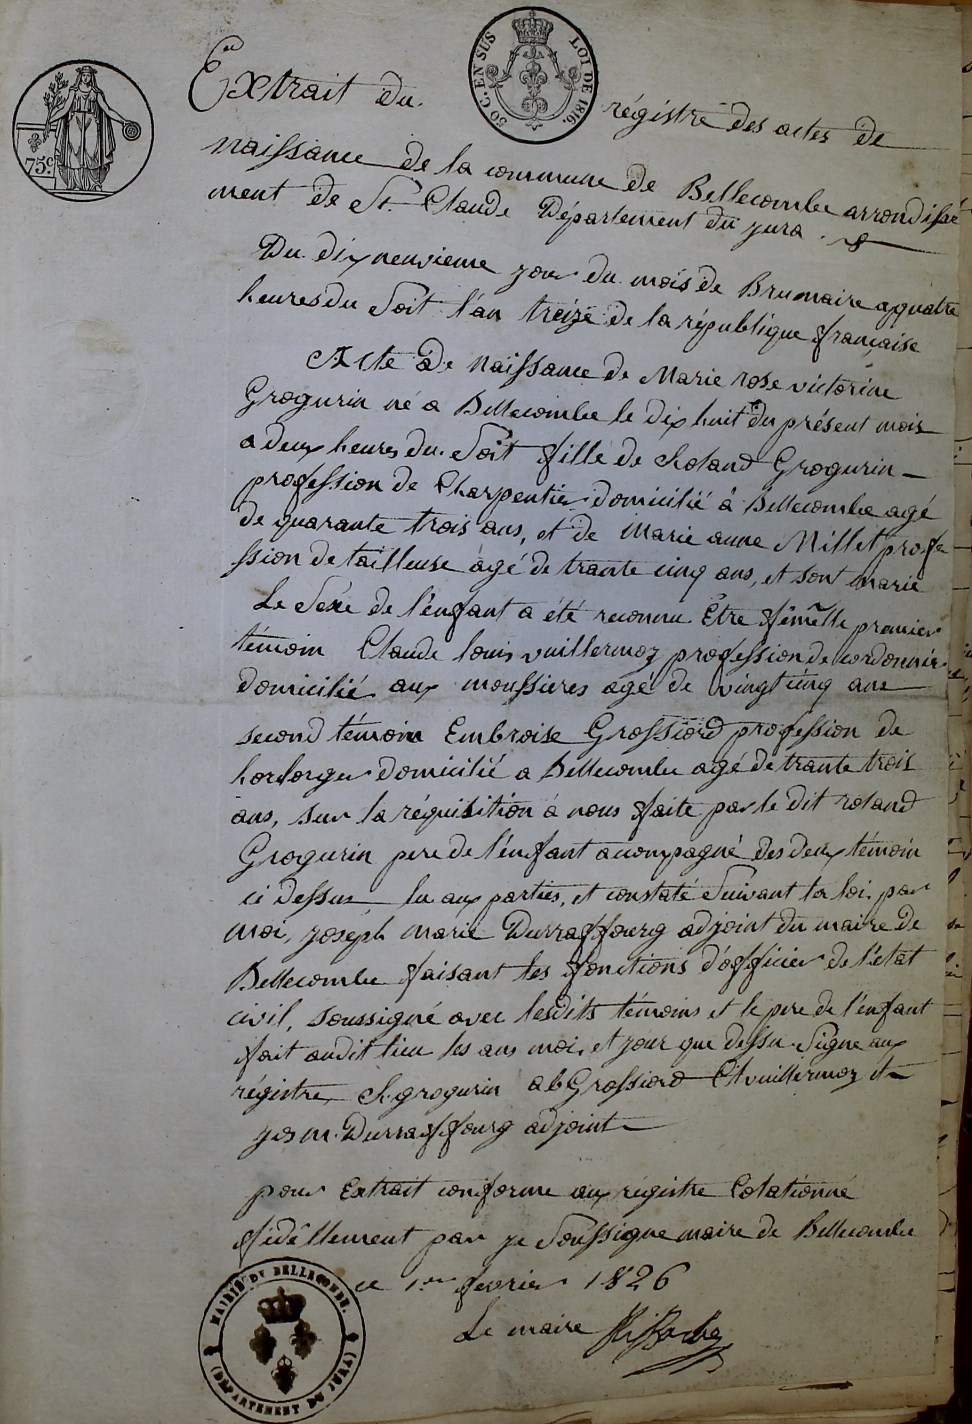 50 C. EN SUS LOI DE 1816.
75c.
Extrait du régistre des actes de
naissance de la commune de Bellecombe arrondisse
ment de St. Claude Département du jura.
Du dix neuvieme jour du mois de Brumaire a quatre
heures du Soit l'an treize de la république française
Acte de naissance de Marie rose victorine
Grogurin né a Bellecombe le dix huit du présent mois
a deux heures du Soit fille de Roland Grogurin
profession de Charpentier domicilié à Bellecombe agé
de quarante trois ans, et de Marie anne Millet profe
ssion de tailleuse agé de trante cinq ans, et sont marié
Le Sexe de l'enfant a été reconnu Être fêmelle premier
témoin Claude louis vuillermoz profession de cordonnier
domicilié aux moussieres agé de vingt cinq ans
second témoin Embroise Grossiord profession de
horlorger domicilié a Bellecombe agé de trante trois
ans, sur la réquisition à nous faite par le dit roland
Grogurin pere de l'enfant acompagné des deux témoin
ci dessus, lu aux parties, et constaté Suivant la loi par
moi, joseph marie Durraffourg adjoint du maire de
Bellecombe faisant les fonctions d'officier de l'état
civil, soussigné avec lesdits témoins et le pere de l'enfant
fait audit lieu les ans moi, et jour que dessu Signe aux
régistre, R. grogurin ab Grossiord Cl vuillermoz et
jos m. Durraffourg adjoint
pour Extrait conforme aux régistre Colationné
fidêllement par je Soussigne maire de Bellecombe
ce 1er fevrier 1826
Le maire
MAIRIE DU BELLECOMBE.
(DÉPARTEMENT DU JURA)